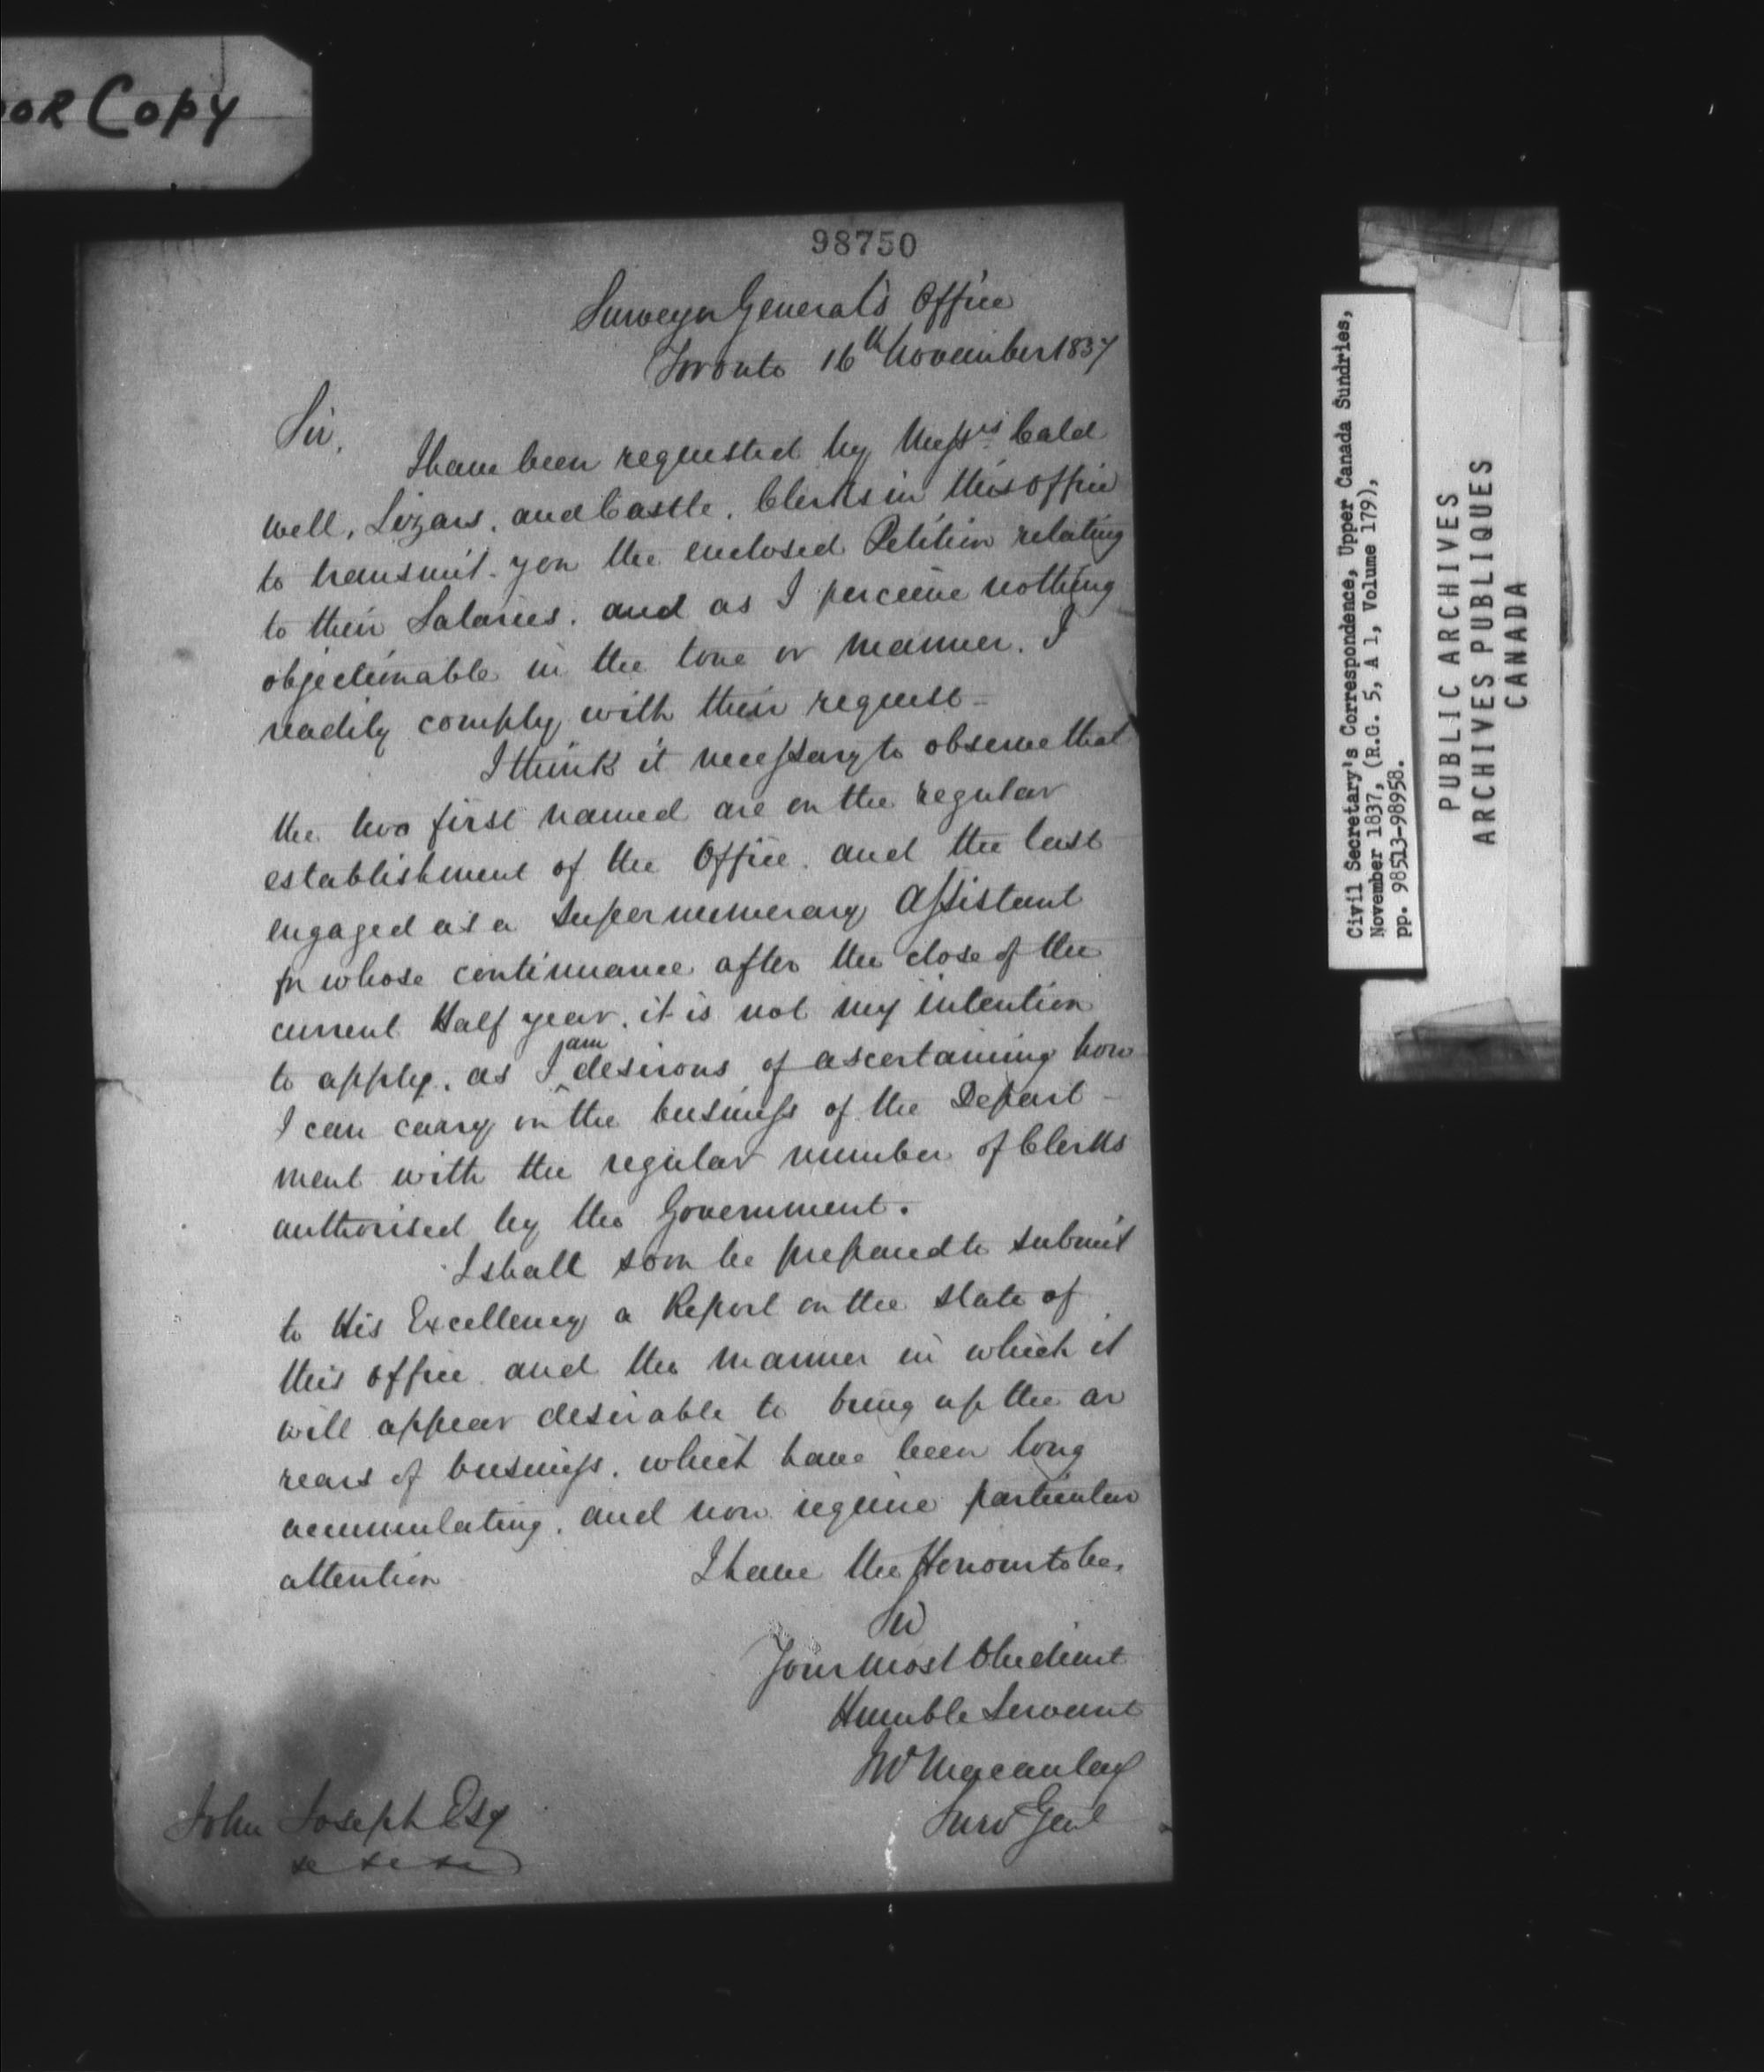 OOR COPY
98750
Surveyor General's Office
Toronto 16th November 1837
Sir,
I have been requested by Messrs Cald
well, Lizars, and Castle, Clerks in this office
to transmit you the enclosed Petition relating
to their Salaries, and as I perceive nothing
objectionable in the tone or manner, I
readily comply with their request –
I think it necessary to observe that
the two first named are on the regular
establishment of the Office, and the last
engaged as a Supernumerary Assistant
for whose continuance after the close of the
current Half year, it is not my intention
to apply, as I am desirous of ascertaining how
I can carry on the business of the Depart –
ment with the regular number of Clerks
authorised by the Government.
I shall soon be prepared to submit
to His Excellency a Report on the state of
this office and the manner in which it
will appear desirable to bring up the ar
rears of business, which have been long
accumulating, and now require particular
attention
I have the Honour to be,
Sir
Your most Obedient
Humble Servant
Macaulay
Surv Genl
John Joseph Esq
&c &c &c
Civil Secretary's Correspondence, Upper Canada Sundries,
November 1837, (R.G. 5, A 1, Volume 179),
pp. 98513-98958.
PUBLIC ARCHIVES
ARCHIVES PUBLIQUES
CANADA